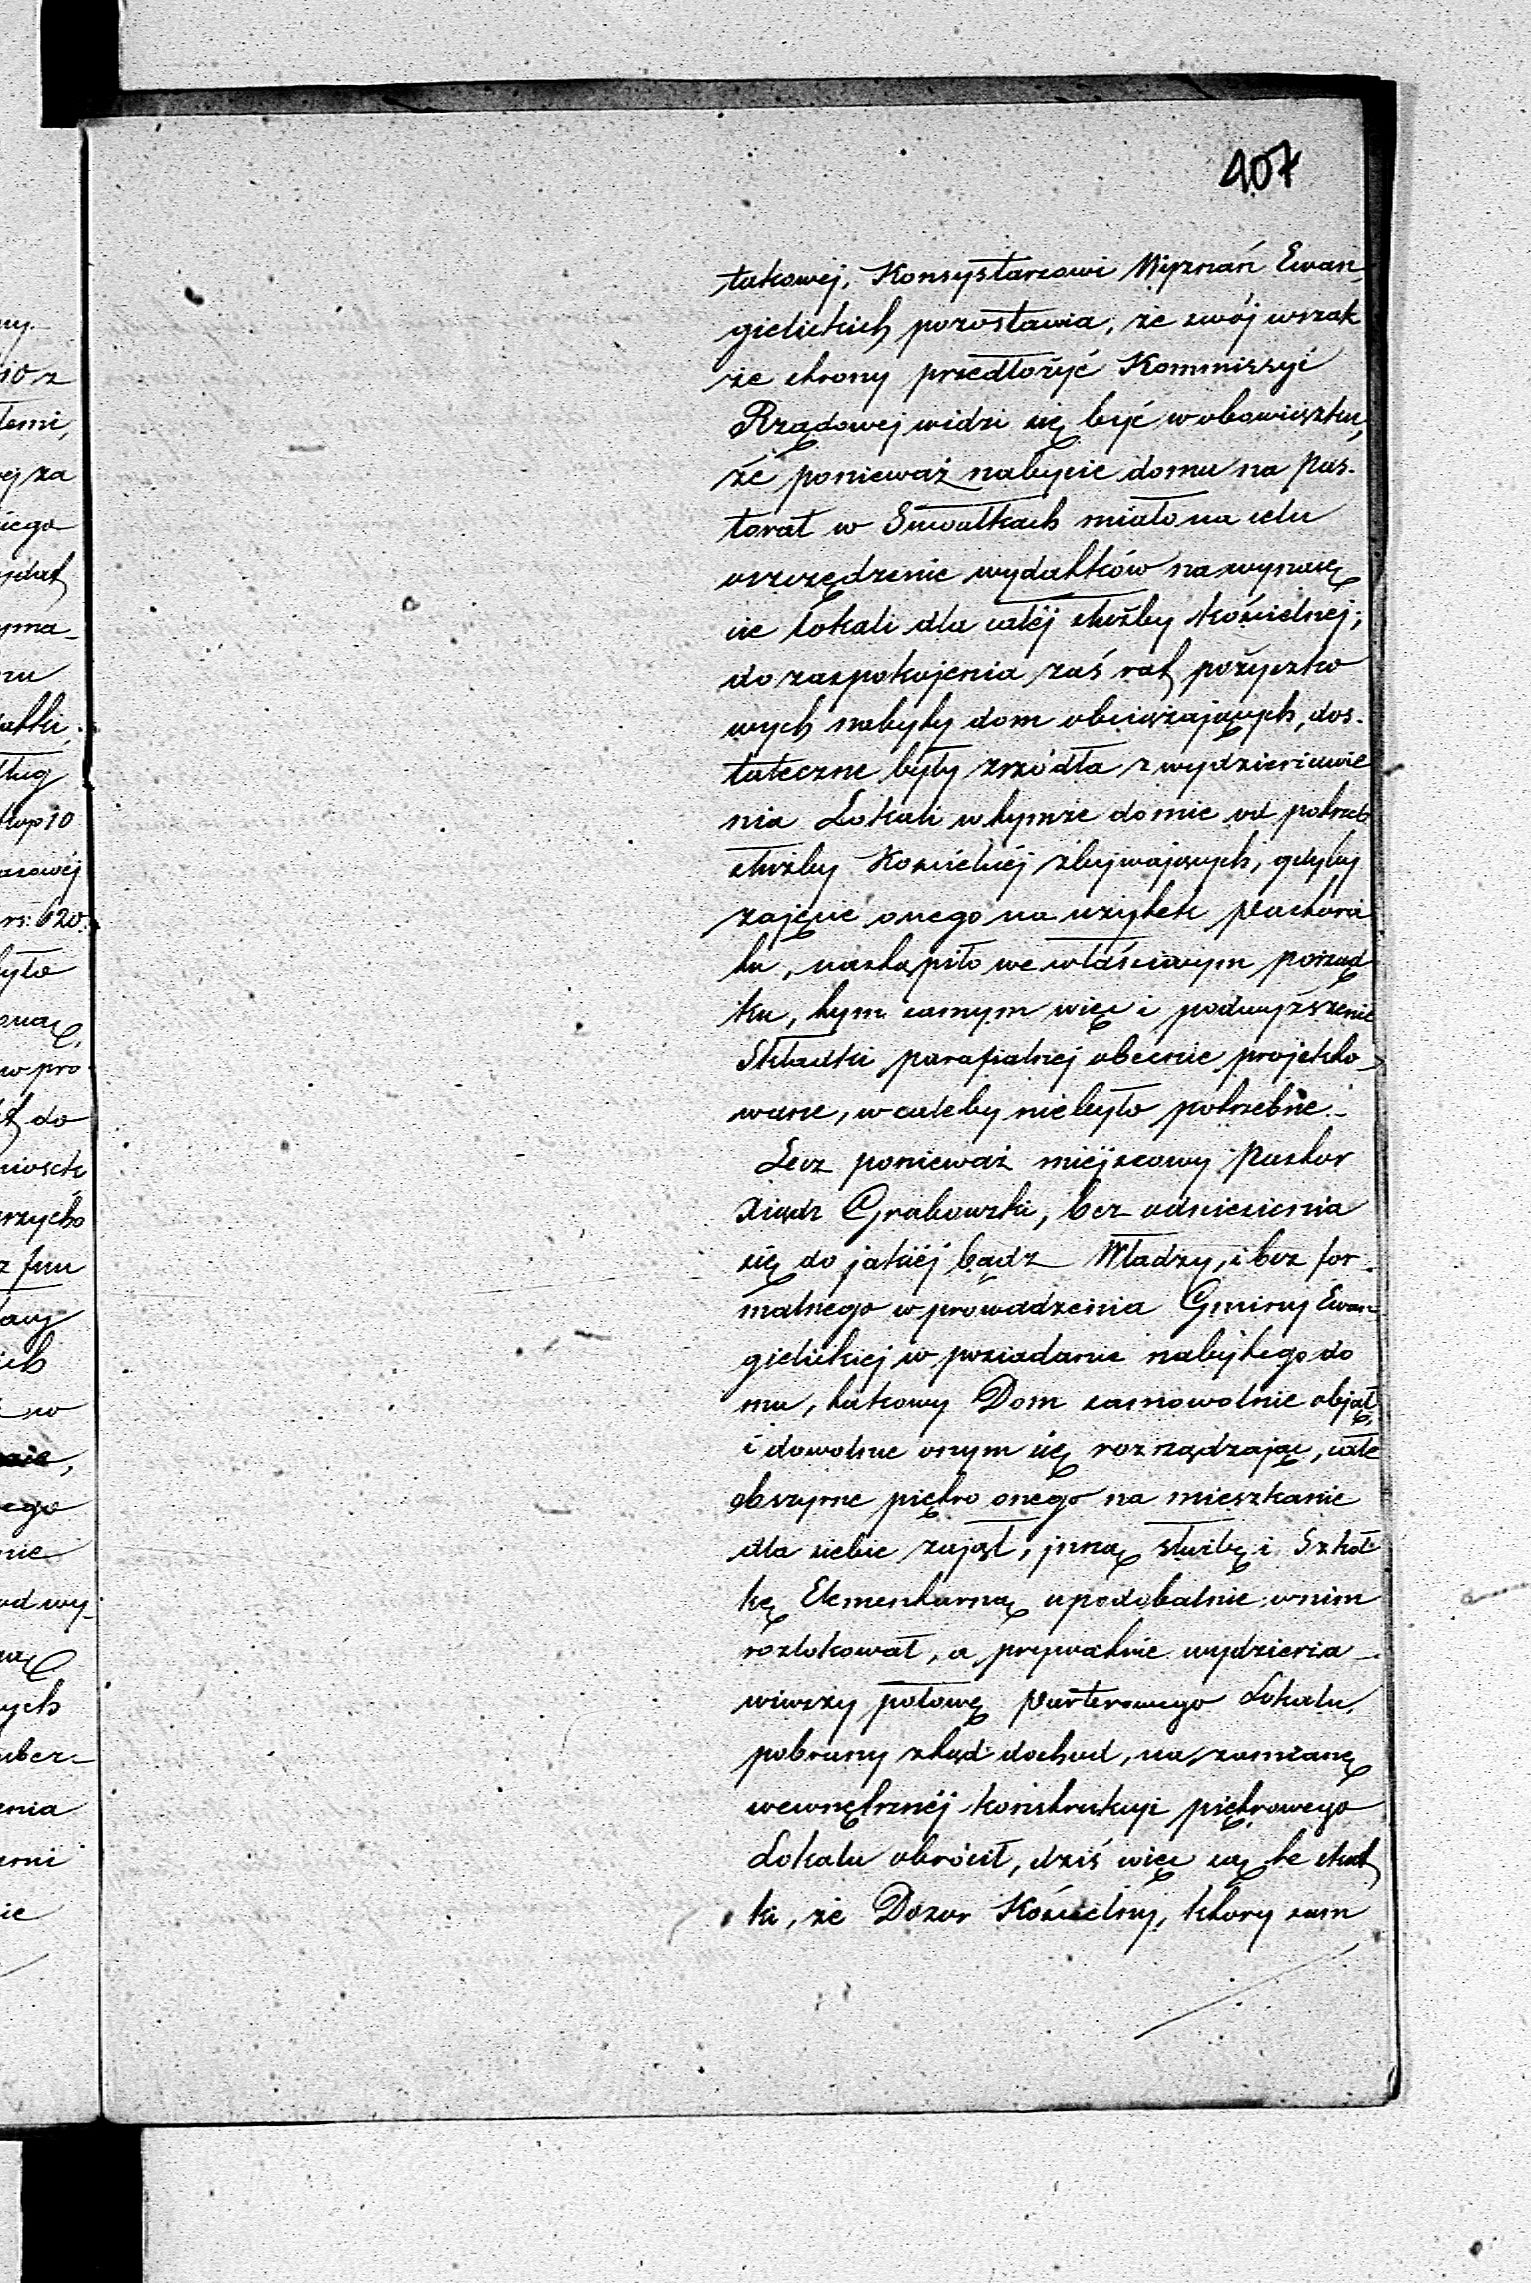 407
takowéj, Konsystarzowi Wyznań Ewan
gielickich pozostawia, ze swój wszak
że strony przedłożyć Kommissyi
Rządowej widzi się być w obowiązku,
że ponieważ nabycie domu na pas-
torat w Suwałkach miało na celu
oszczędzenie wydatków na wynaję
cie lokali dla całéj służby kościelnej;
do zaspokojenia zaś rat pożyczko
wych nabyty dom obciążających, dos-
tateczne były źrzódła z wydzierżawie
nia Lokali w tymże domie od potrzeb
służby Kościelnéj zbywających, gdyby
zajęcie onego na użytek Pastora
tu, nastąpiło we właściwym porząd
ku, tym samym więc i podwyższenie
Składki parafialnej obecnie projekto-
wane, wcaleby niebyło potrzebne.-
Lecz ponieważ miéjscowy Pastor
Xiądz Grabowski, bez odniesienia
się do jakiéj bądź Władzy, i bez for-
malnego wprowadzenia Gminy Ewan-
gielickiej w posiadanie nabytego do
mu, takowy Dom samowolnie objął,
i dowolnie onym się rozrządzając, całe
obszyrne piętro onego na mieszkanie
dla siebie zajął, jnną służbę i Szkół
kę Elementarną upodobalnie wnim
rozlokował, a prywatnie wydzierża-
wiwszy połowę Parterowego Lokalu,
pobrany ztąd dochod, na zamianę
wewnętrznéj konstrukcyi piętrowego
Lokalu obrócił, dziś więc są te skut
ki, że Dozor Kościelny, ktory sam
ny-
10 z
temi,
ej za
iego
ydat
yma-
nu
atki,
ług
kop 10
rs: 120.
yło
w pro
do
niosek
z fun
ich
w
ego
nie
od wy-
ych
uber-
enia
ie